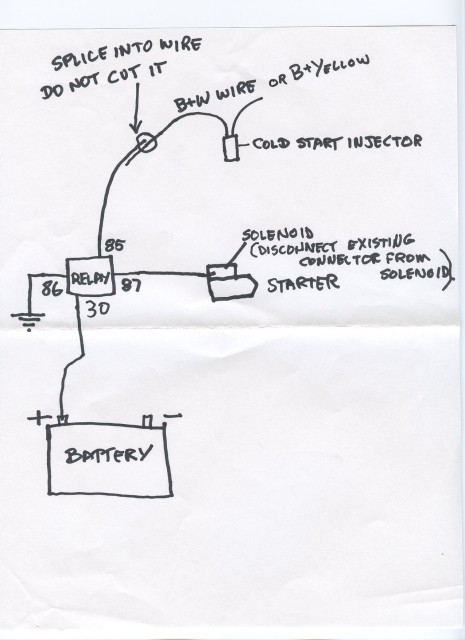 SPLICE INTO WIRE
DO NOT CUT IT
B+W WIRE OR B+YELLOW
COLD START INJECTOR
85
SOLENOID
(DISCONNECT EXISTING
CONNECTOR FROM
SOLENOID)
86
RELAY
87
STARTER
30
+
-
BATTERY